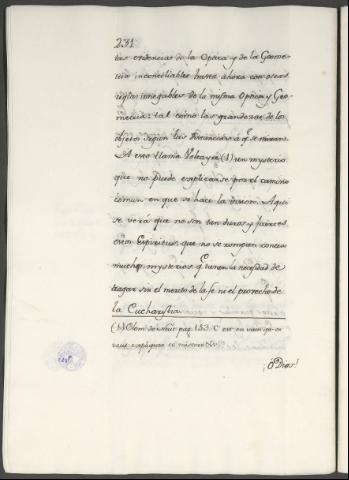 231
tas evidencias de la Optica y de la Geome-
tria inconciliables hasta ahora con otras
reglas innegables de la misma Optica y Geo-
metria: tal como las grandezas de los
objetos segun las distancias à q.e se miran.
A esto llama Voltayre (1) un mysterio
que no puede explicarse por el camino
comun en que se hace la vision. Aqui
se verá que no son tan duros y fuertes
estos Espiritus que no se rompan contra
muchos mysterios q.e tienen la necesidad de
tragar sin el merito de la fe ni el provecho de
la Eucharistia
(1) Elem. de pag. 153. C est en vain
veut expliquer ce mistere
¡ô Dios!